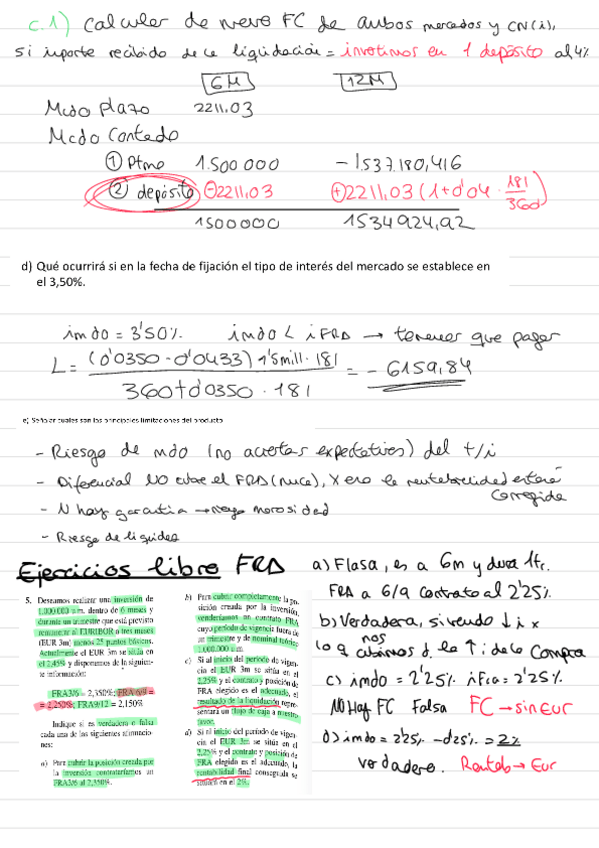 c.1) Calculer de nuevo FC de ambos mercados y CN(i),
si importe recibido de la liquidación = invertimos en 1 depósito al 4%
6M 12M
Mcdo Plazo 2211,03
Mcdo Contado
① Ptmo 1.500 000 -1537.180,416
② depósito ⊖2211,03 ⊕2211,03 (1+0'04 · 181/360)
1500000 1534924,92
d) Qué ocurrirá si en la fecha de fijación el tipo de interés del mercado se establece en
el 3,50%.
imdo = 3'50%. imdo < iFRA → tenemos que pagar
L = (0'0350 - 0'0433) 1'5mill · 181 / 360+0'0350 · 181 = - 6159,84
e) Señalar cuales son las principales limitaciones del producto
- Riesgo de mdo (no aciertas expectativas) del t/i
- Diferencial NO cubre el FRA (nunca), x eso la rentabilidad estará
corregida
- N hay garantía → riesgo morosidad
- Riesgo de liquidez
Ejercicios libro FRA
5. Deseamos realizar una inversión de
1.000.000 u.m. dentro de 6 meses y
durante un trimestre que está previsto
remunerar al EURIBOR a tres meses
(EUR 3m) menos 25 puntos básicos.
Actualmente el EUR 3m se sitúa en
el 2,45% y disponemos de la siguien-
te información:
FRA3/6 = 2,350%; FRA 6/9 =
= 2,250%; FRA9/12 = 2,150%
Indique si es verdadera o falsa
cada una de las siguientes afirmacio-
nes:
a) Para cubrir la posición creada por
la inversión contrataríamos un
FRA3/6 al 2,350%.
b) Para cubrir completamente la po-
sición creada por la inversión,
venderíamos un contrato FRA
cuyo período de vigencia fuera de
un trimestre y de nominal teórico
1.000.000 u.m.
c) Si al inicio del período de vigen-
cia el EUR 3m se sitúa en el
2,25% y el contrato y posición de
FRA elegido es el adecuado, el
resultado de la liquidación repre-
sentará un flujo de caja a nuestro
favor.
d) Si al inicio del período de vigen-
cia el EUR 3m se sitúa en el
2,25% y el contrato y posición de
FRA elegida es el adecuado, la
rentabilidad final conseguida se
situará en el 2%.
a) Flasa, es a 6m y dura 1tr.
FRA a 6/9 contrato al 2'25%
b) Verdadera, sivendo ↓ i x
lo q nos cubrimos d. la ↑ i de la compra
c) imdo = 2'25% iFra = 2'25%
NO Hay FC Falsa FC → sin Eur
d) imdo = 2'25% - 0'25% = 2%
Verdadero. Rentab → Eur